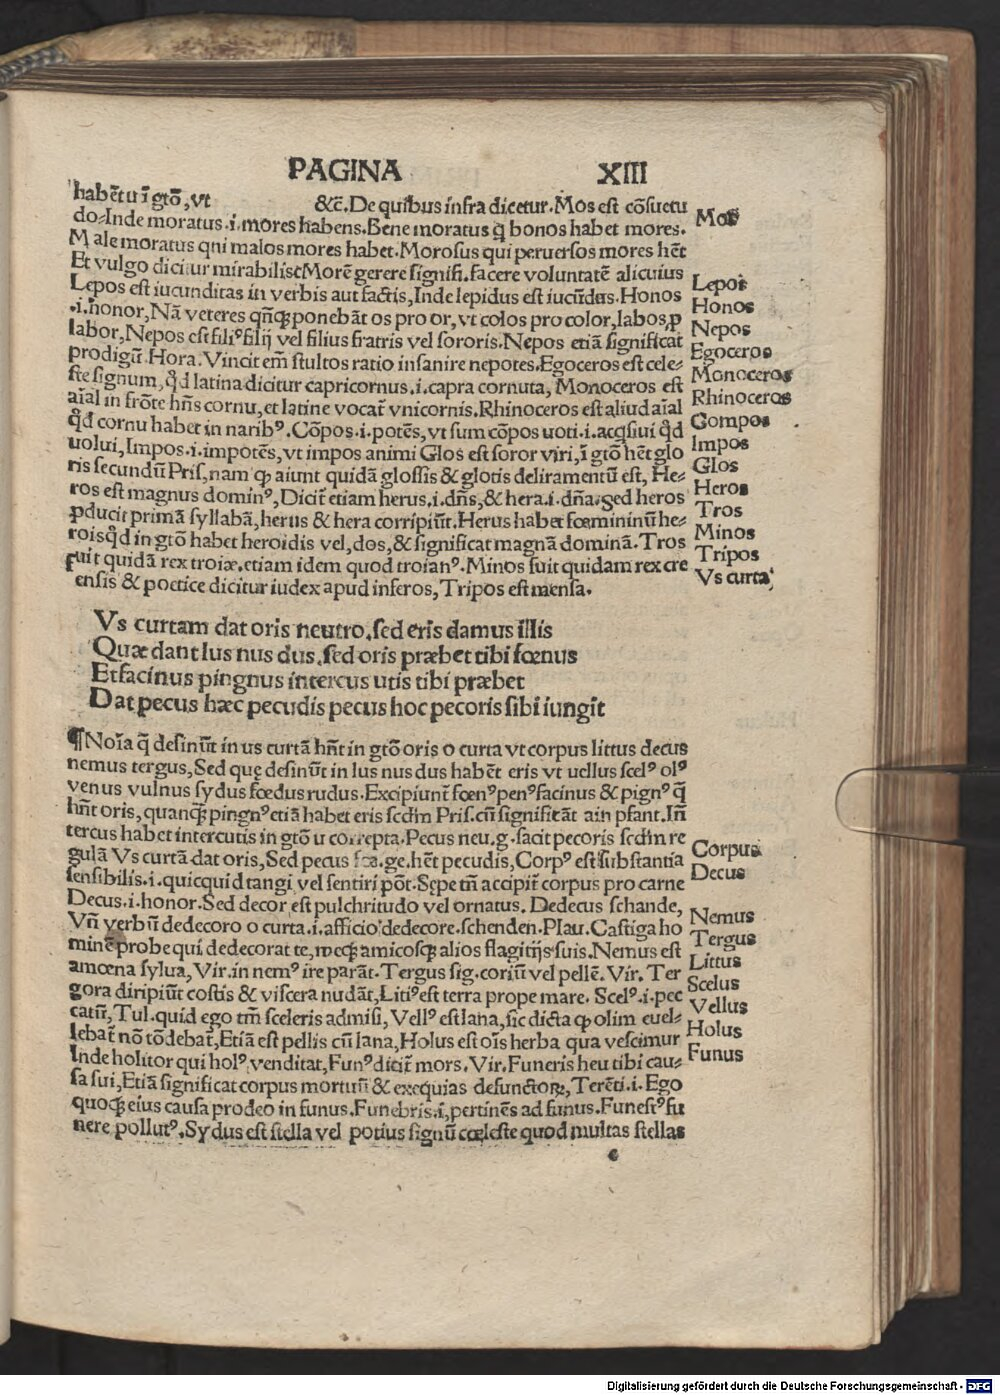 PAGINA XIII
habēt u ī gtō, vt &c̄. De quibus infra dicetur. Mos est cōsuetu
do. Inde moratus .i. mores habens. Bene moratus q̄ bonos habet mores.
Male moratus qui malos mores habet. Morosus qui peruersos mores hēt
Et vulgo dicitur mirabilist Morē gerere signifi. facere voluntatē alicuius
Lepos est iucunditas in verbis aut factis, Inde lepidus est iucūdus. Honos
.i. honor, Nā veteres qñqꝫ ponebāt os pro or, vt colos pro color, labos, ꝓ
labor, Nepos est filiꝰ filij vel filius fratris vel sororis. Nepos etiā significat
prodigū. Hora. Vincit em̄ stultos ratio insanire nepotes. Egoceros est cele-
ste signum, qd̄ latina dicitur capricornus .i. capra cornuta, Monoceros est
aīal in frōte hn̄s cornu, et latine vocat̄ vnicornis. Rhinoceros est aliud aīal
qd̄ cornu habet in naribꝰ. Cōpos .i. potēs, vt sum cōpos uoti .i. acq̄siui qd̄
uolui, Impos .i. impotēs, vt impos animi Glos est soror viri, ī gtō hēt glo
ris secundū Pris, nam ꝙ aiunt quidā glossis & glotis deliramentū est, He-
ros est magnus dominꝰ, Dicit̄ etiam herus .i. dn̄s, & hera .i. dn̄a. sed heros
ꝓducit primā syllabā, herus & hera corripiūt. Herus habet fœmininū he-
rois qd̄ in gtō habet heroidis vel, dos, & significat magnā dominā. Tros
fuit quidā rex troiæ. etiam idem quod troianꝰ. Minos fuit quidam rex cre
ensis & poetice dicitur iudex apud inferos, Tripos est mensa.
Mos
Lepos
Honos
Nepos
Egoceros
Monoceros
Rhinoceros
Compos
Impos
Glos
Heros
Tros
Minos
Tripos
Vs curta
Vs curtam dat oris neutro. sed eris damus illis
Quæ dant lus nus dus. sed oris præbet tibi fœnus
Et facinus pingnus intercus utis tibi præbet
Dat pecus hæc pecudis pecus hoc pecoris sibi iungit
¶ Noīa q̄ desinūt in us curtā hn̄t in gtō oris o curta vt corpus littus decus
nemus tergus, Sed que desinūt in lus nus dus habēt eris vt uellus scelꝰ olꝰ
venus vulnus sydus fœdus rudus. Excipiunt̄ fœnꝰ penꝰ facinus & pignꝰ q̄
hn̄t oris, quanqꝫ pingnꝰ etiā habet eris scdm̄ Pris. cū significāt ain psant. In̄
tercus habet intercutis in gtō u correpta. Pecus neu. g. facit pecoris scdm̄ re
gulā Vs curtā dat oris, Sed pecus fœ. ge. hēt pecudis, Corpꝰ est substantia
sensibilis .i. quicquid tangi vel sentiri pōt. Sepe tm̄ accipit̄ corpus pro carne
Decus .i. honor. Sed decor est pulchritudo vel ornatus. Dedecus schande,
Vn̄ verbū dedecoro o curta .i. afficio dedecore. schenden. Plau. Castiga ho
minē probe qui dedecorat te, meqꝫ amicosqꝫ alios flagitijs suis. Nemus est
amœna sylua, Vir. in nemꝰ ire parāt. Tergus sig. coriū vel pellē. Vir. Ter
gora diripiūt costis & viscera nudāt, Litꝰ est terra prope mare. Scelꝰ .i. pec
catū, Tul. quid ego tm̄ sceleris admisi, Vellꝰ est lana, sic dicta ꝙ olim euel-
lebāt nō tōdebāt, Etiā est pellis cū lana, Holus est oīs herba qua vescimur
Inde holitor qui holꝰ venditat, Funꝰ dicit̄ mors. Vir. Funeris heu tibi cau-
sa fui, Etiā significat corpus mortuū & exequias defunctoꝝ, Terēti .i. Ego
quoqꝫ eius causa prodeo in funus. Funebris .i, pertinēs ad funus. Funestꝰ fu
nere pollutꝰ. Sydus est stella vel potius signū cœleste quod multas stellas
c
Corpus
Decus
Nemus
Tergus
Littus
Scelus
Vellus
Holus
Funus
Digitalisierung gefördert durch die Deutsche Forschungsgemeinschaft - DFG